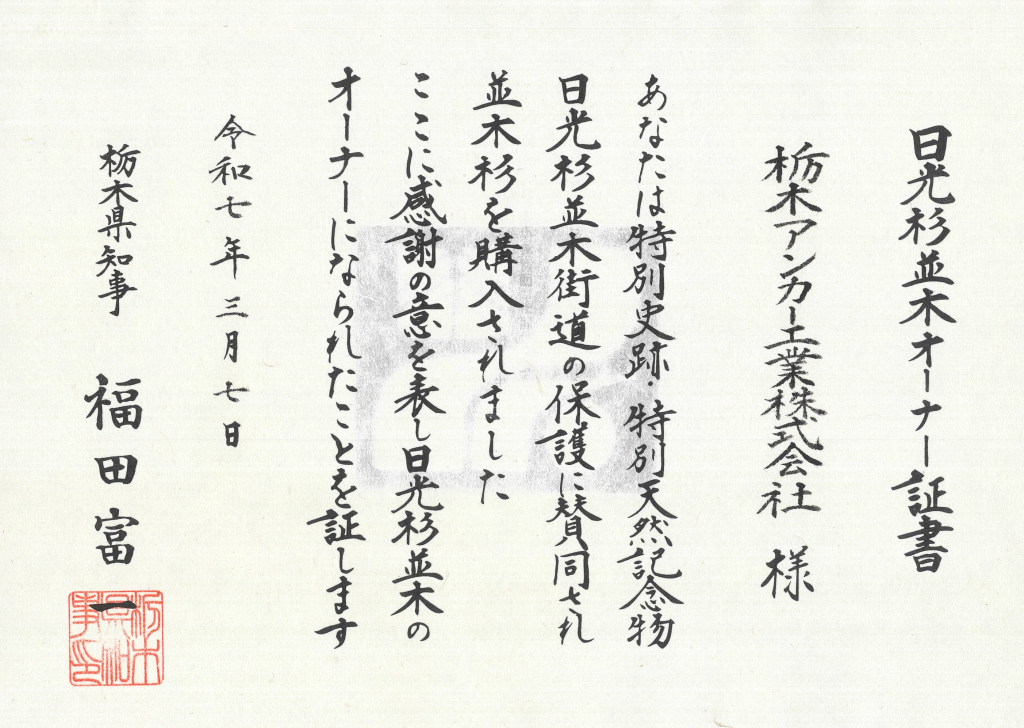 日光杉並木オーナー証書
栃木アンカー工業株式会社 様
あなたは特別史跡・特別天然記念物
日光杉並木街道の保護に賛同され
並木杉を購入されました
ここに感謝の意を表し日光杉並木の
オーナーになられたことを証します
令和七年三月七日
栃木県知事 福田富一